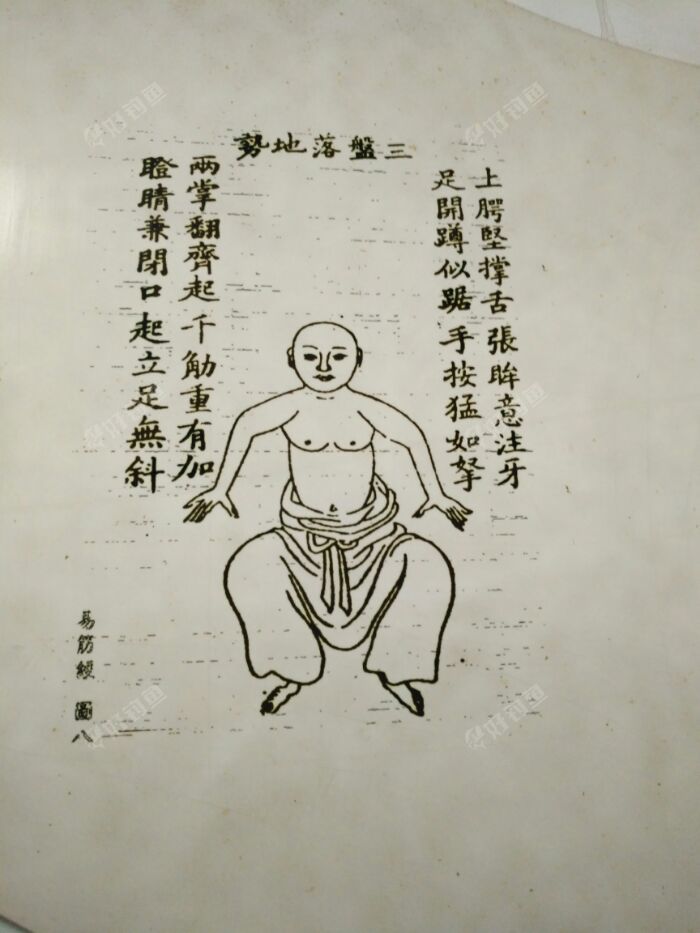 三盤落地勢
上腭堅撑舌 張眸意注牙
足開蹲似踞 手按猛如拏
兩掌翻齊起 千觔重有加
瞪睛兼閉口 起立足無斜
易筋經 圖八
好钓鱼